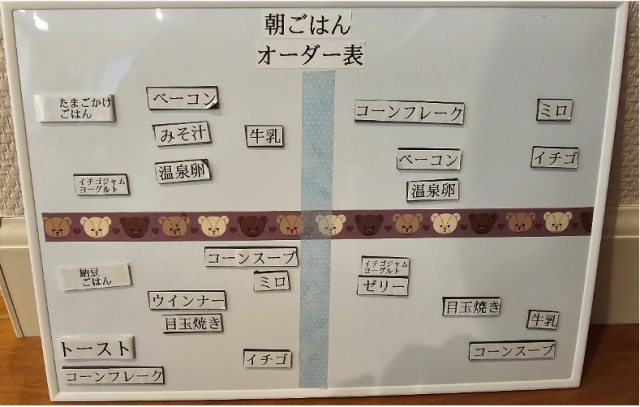 朝ごはん
オーダー表
たまごかけ
ごはん
ベーコン
みそ汁
牛乳
温泉卵
イチゴジャム
ヨーグルト
コーンフレーク
ミロ
ベーコン
イチゴ
温泉卵
納豆
ごはん
コーンスープ
ミロ
ウインナー
目玉焼き
トースト
イチゴ
コーンフレーク
イチゴジャム
ヨーグルト
ゼリー
目玉焼き
牛乳
コーンスープ